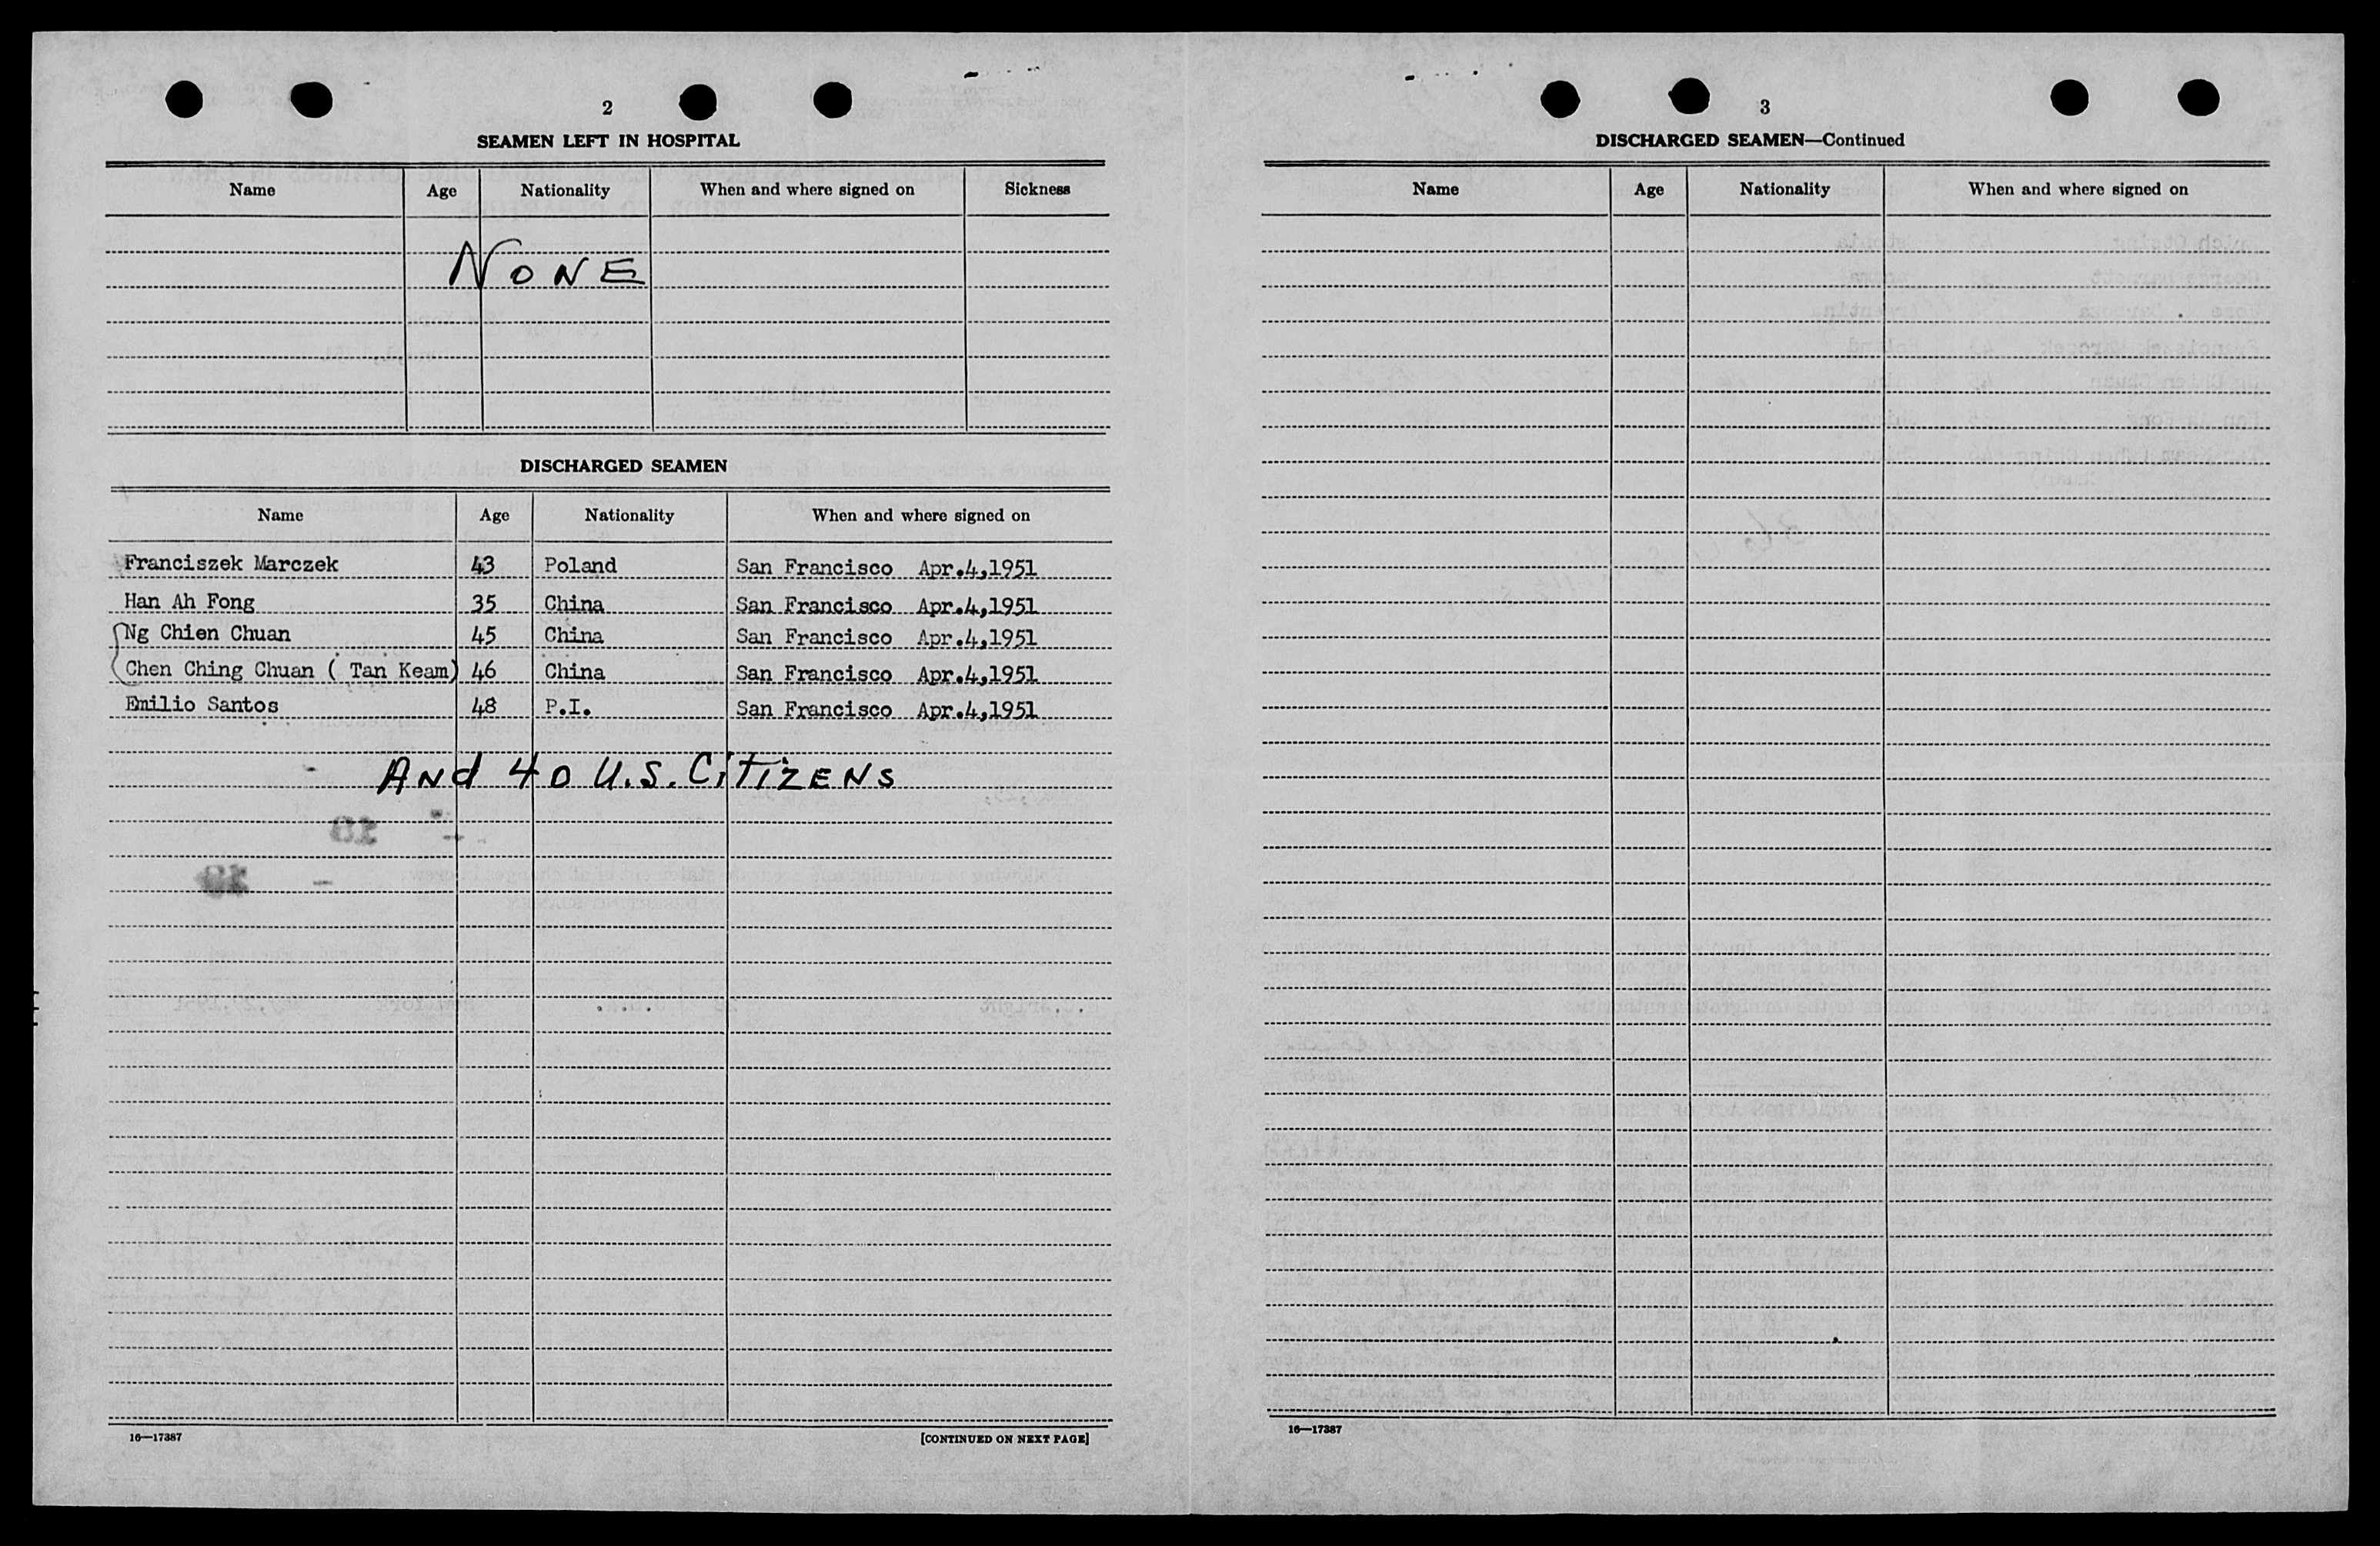 2
SEAMEN LEFT IN HOSPITAL
Name Age Nationality When and where signed on Sickness
NONE
DISCHARGED SEAMEN
Name Age Nationality When and where signed on
Franciszek Marczek 43 Poland San Francisco Apr.4,1951
Han Ah Fong 35 China San Francisco Apr.4,1951
Ng Chien Chuan 45 China San Francisco Apr.4,1951
Chen Ching Chuan ( Tan Keam) 46 China San Francisco Apr.4,1951
Emilio Santos 48 P.I. San Francisco Apr.4,1951
And 40 U.S. CiTiZENS
16—17387 [CONTINUED ON NEXT PAGE]
3
DISCHARGED SEAMEN—Continued
Name Age Nationality When and where signed on
16—17387